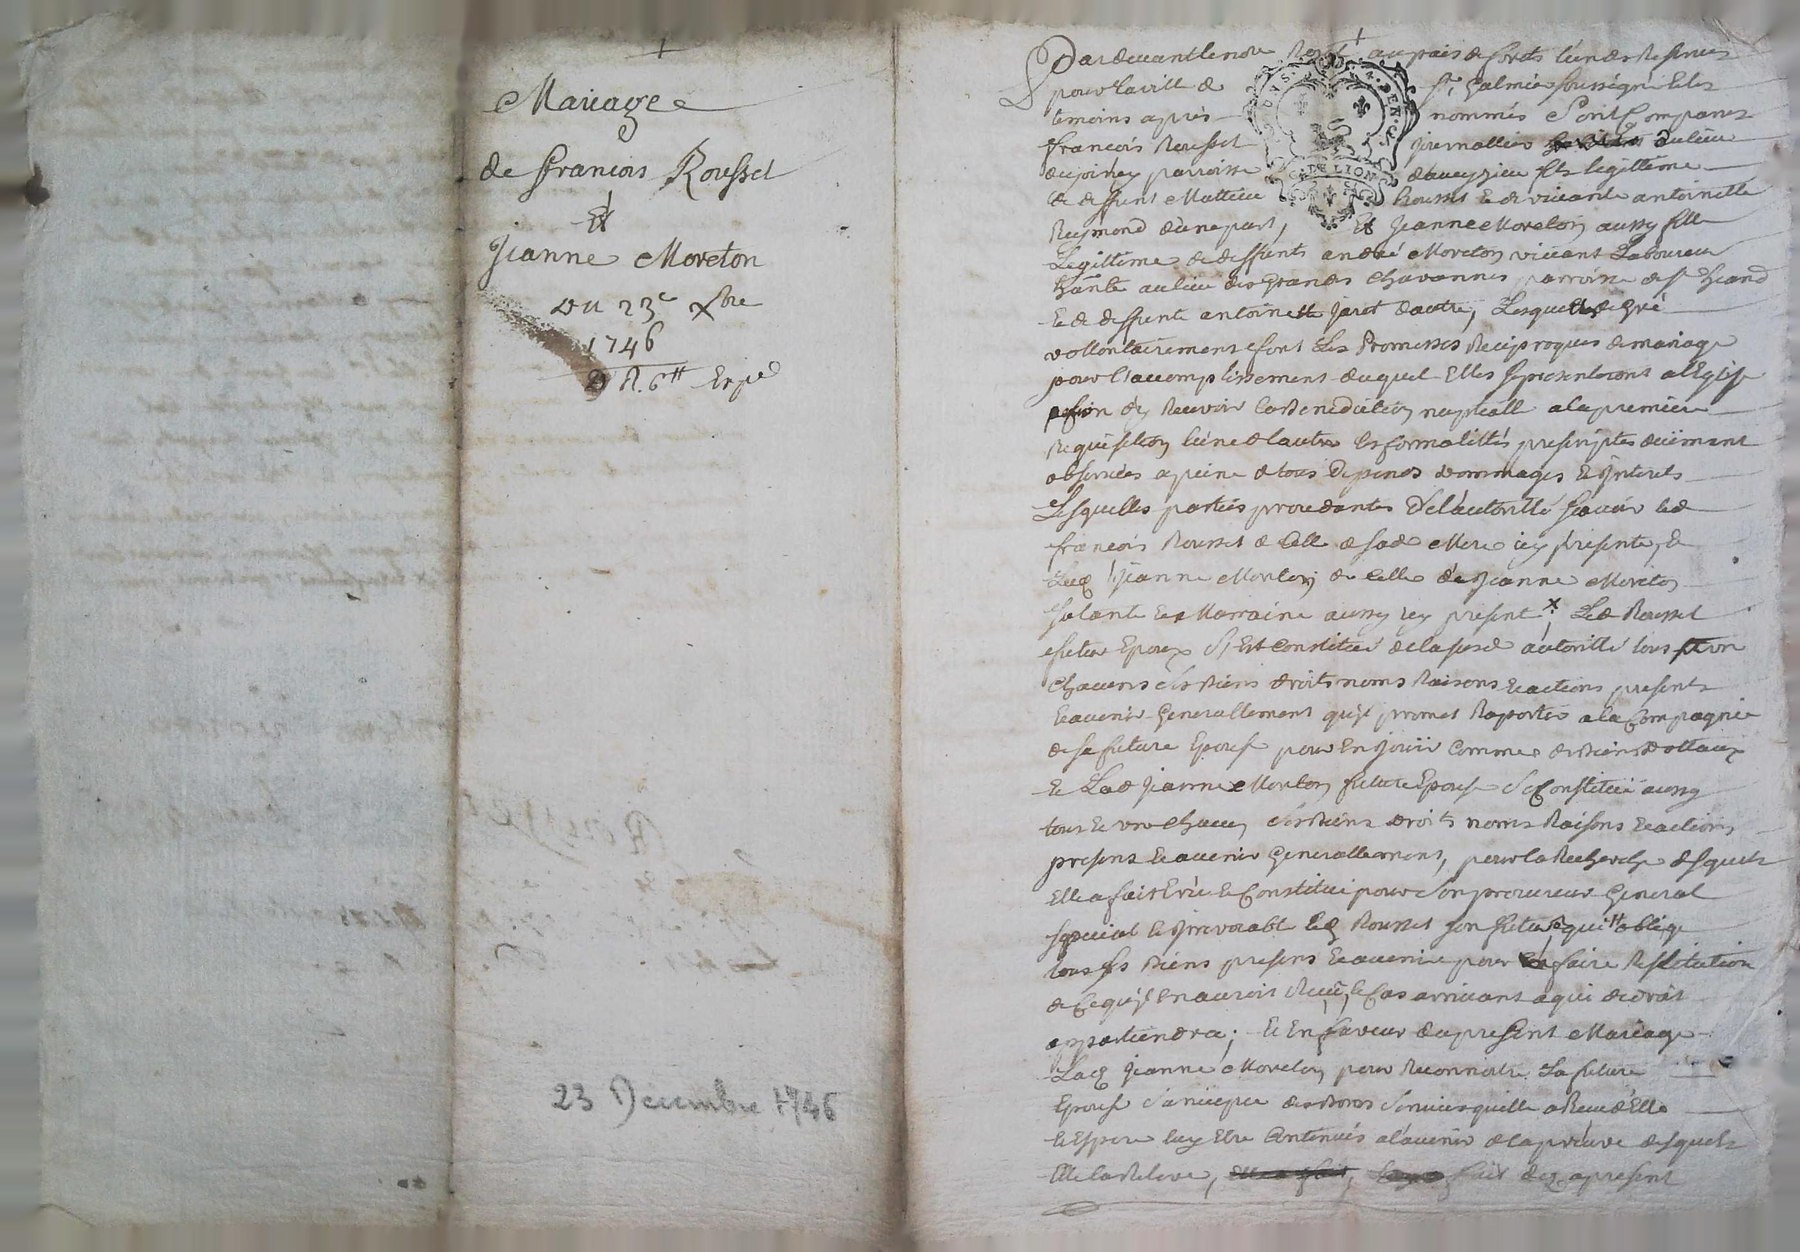 Mariage
de francois Rousset
Et
Jeanne Moreton
Du 23e xbre
1746
R. 6tt Expé
23 Decembre 1746
Pardevant le no.re Royal au païs de forets l'un des Reservés
pour la ville de St. Galmier soussigné et les
temoins après nommés sont comparus
francois Rousset au lieu
parroisse d'aveyzieu fils legittime
de deffunt Mattieu Rousset et de vivante antoinette
Reymond d'une part, Et Jeanne Moreton aussy fille
Legittime de deffunts andré Moreton vivant Laboureur
hante au lieu des Grandes Chavannes parroisse de St
et de deffunte antoinette Jaret d'autre, Lesquelles de gré
vollontairement font Les Promesses Reciproques de mariage
pour l'accomplissement duquel Elles se presenteront a l'Eglise
affin d'y Recevoir la Benediction nuptialle a la premiere
Requisition l'une de l'autre les formalittés prescriptes düement
observées a peine de tous Depends dommages et interets
Lesquelles parties procedantes De l'autorité sçavoir led
francois Rousset de celle de sad Mere icy presente, et
Lad Jeanne Moreton de celle de Jeanne Moreton
sa tante et Marraine aussy icy present x Led Rousset
futur Epoux s'Est constitué de la susd autoritté tous et un
chacuns ses Biens droits noms Raisons et actions presents
et avenir Generallement qu'il promet Raporter a la Compagnie
de sa future Epouse pour En Joüir comme de Biens dottaux
et Lad Jeanne Moreton future Epouse se Constitüe aussy
tous et un chacun ses Biens droits noms Raisons et actions
presens et avenir Generallement, pour la Recherche desquels
Elle a fait Crée et Constitué pour son procureur General
special et irrevocable led Rousset son futur qui oblige
tous ses Biens presens et avenir pour faire Restitution
de ce qu'il En auroit Receu, le Cas arrivant a qui de droit
appartiendra; Et En faveur du present Mariage
Lad Jeanne Moreton pour Reconnoitre La future
Epouse sa niepce des Bons services qu'elle a Receu d'Elle
et Espere luy Etre Continués a l'avenir de la preuve desquels
Elle la Releve, fait dez a present